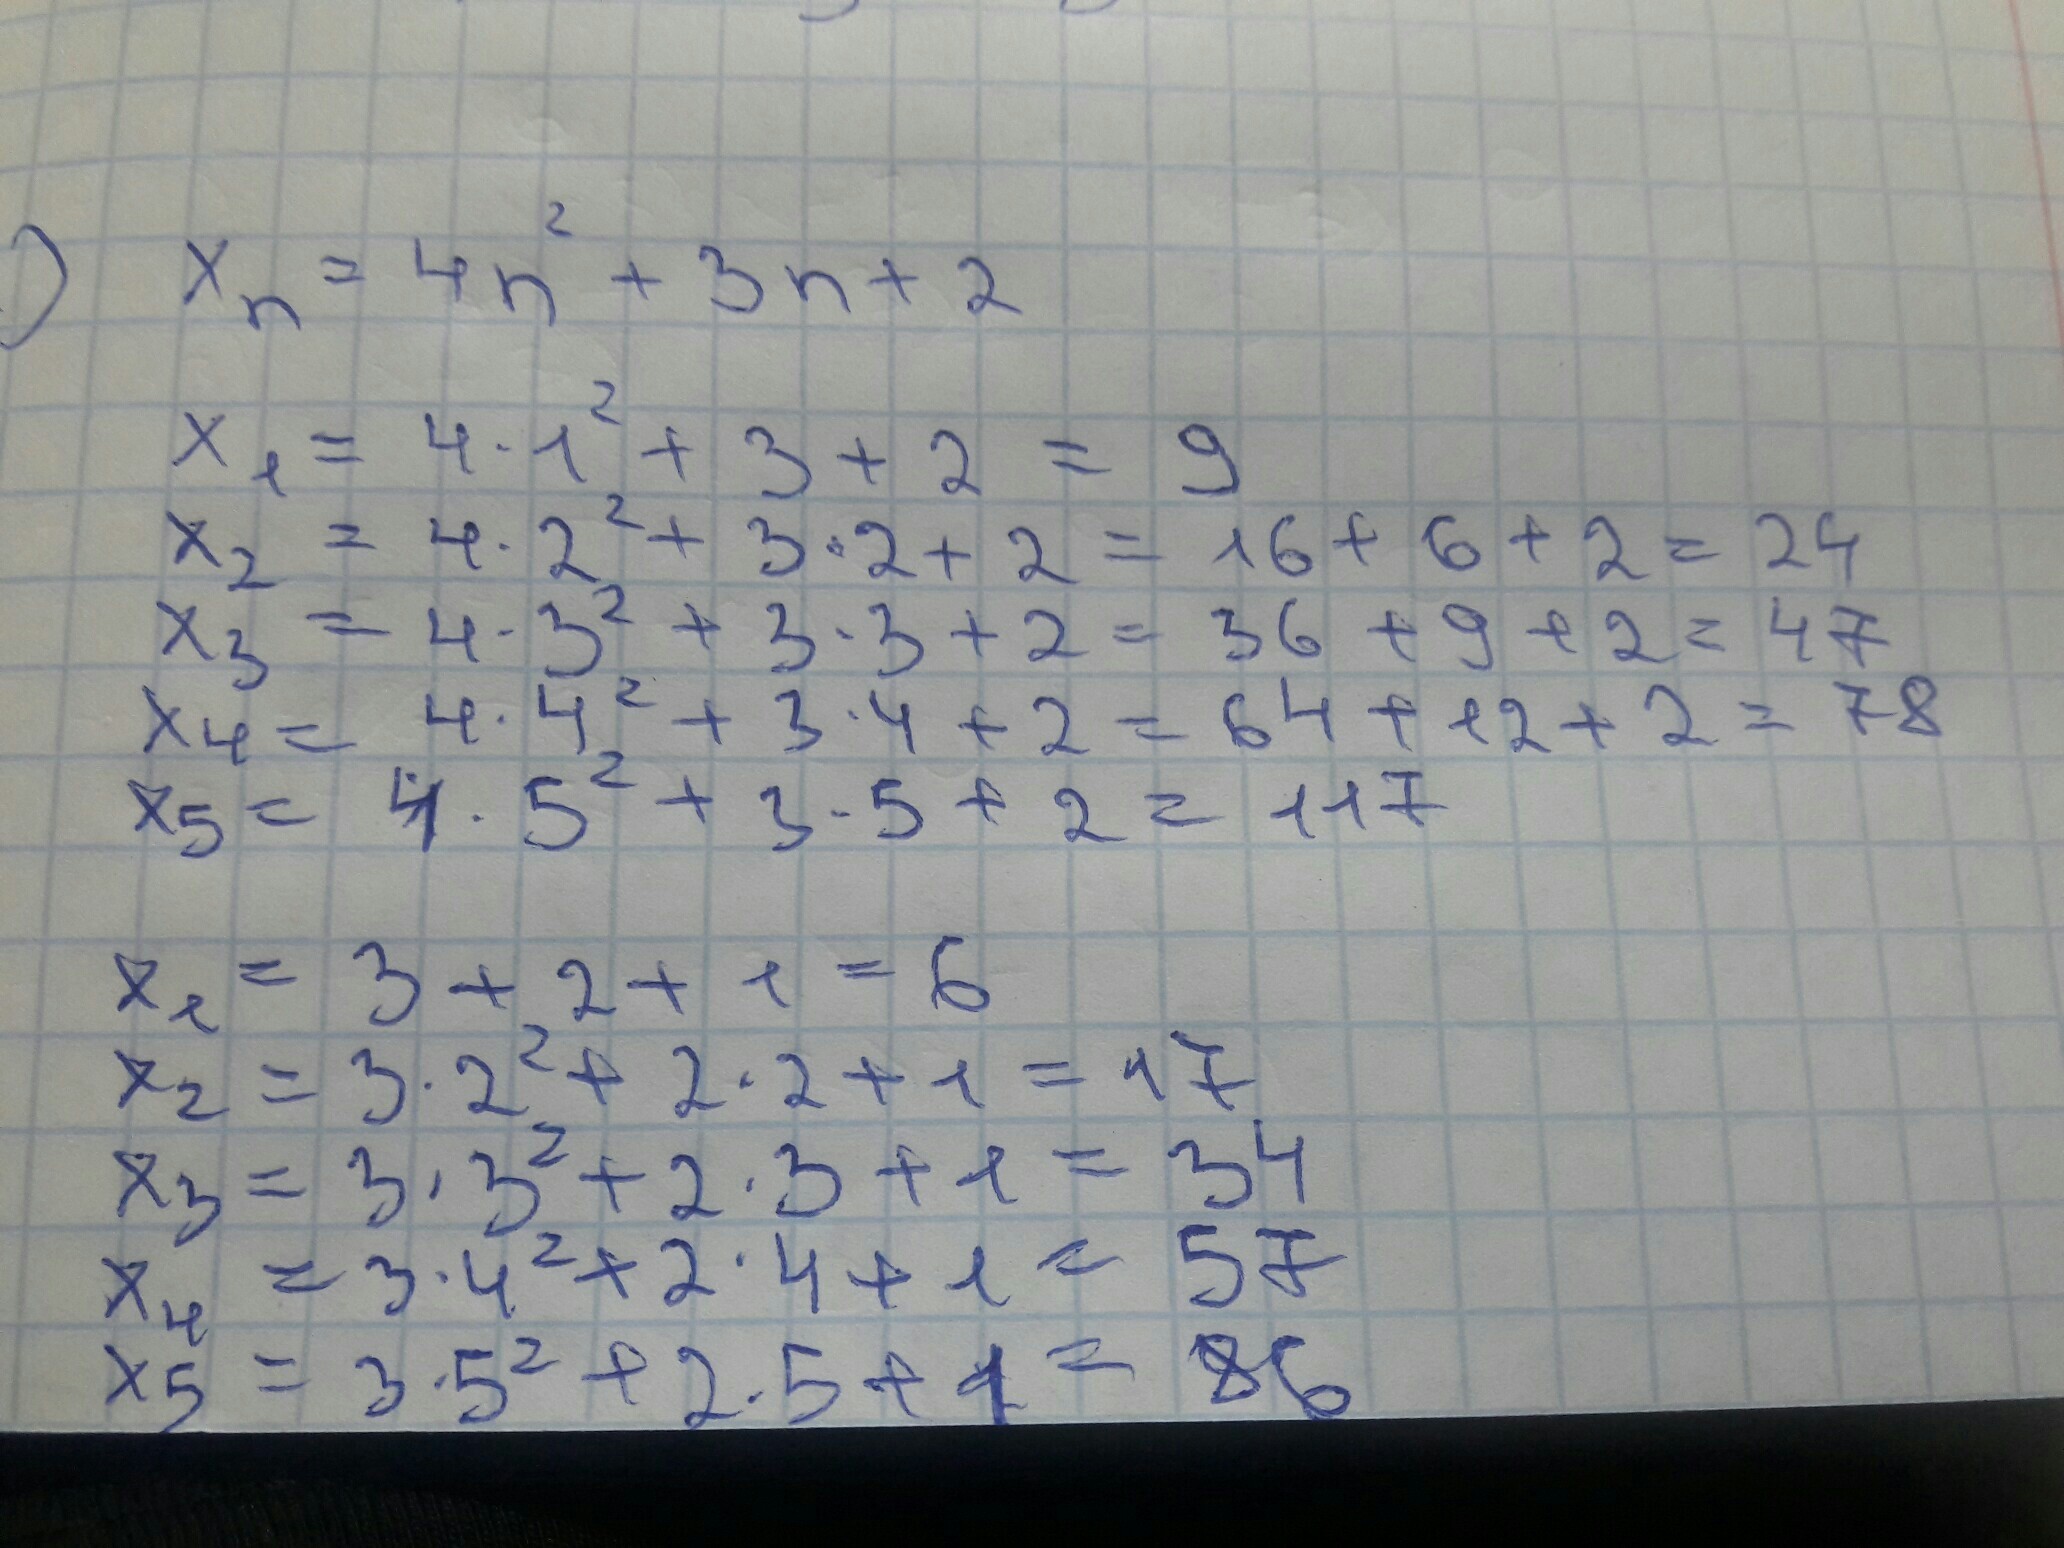 ) xₙ = 4n² + 3n + 2
x₁ = 4·1² + 3 + 2 = 9
x₂ = 4·2² + 3·2 + 2 = 16 + 6 + 2 = 24
x₃ = 4·3² + 3·3 + 2 = 36 + 9 + 2 = 47
x₄ = 4·4² + 3·4 + 2 = 64 + 12 + 2 = 78
x₅ = 4·5² + 3·5 + 2 = 117
x₁ = 3 + 2 + 1 = 6
x₂ = 3·2² + 2·2 + 1 = 17
x₃ = 3·3² + 2·3 + 1 = 34
x₄ = 3·4² + 2·4 + 1 = 57
x₅ = 3·5² + 2·5 + 1 = 86